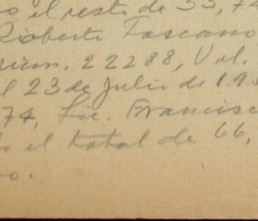 o el resto de 33, 74
Roberto Toscano
núm. 22288, Vol.
l 23 de Julio de 193
74, Lic. Francisc
el total de 66,
o.